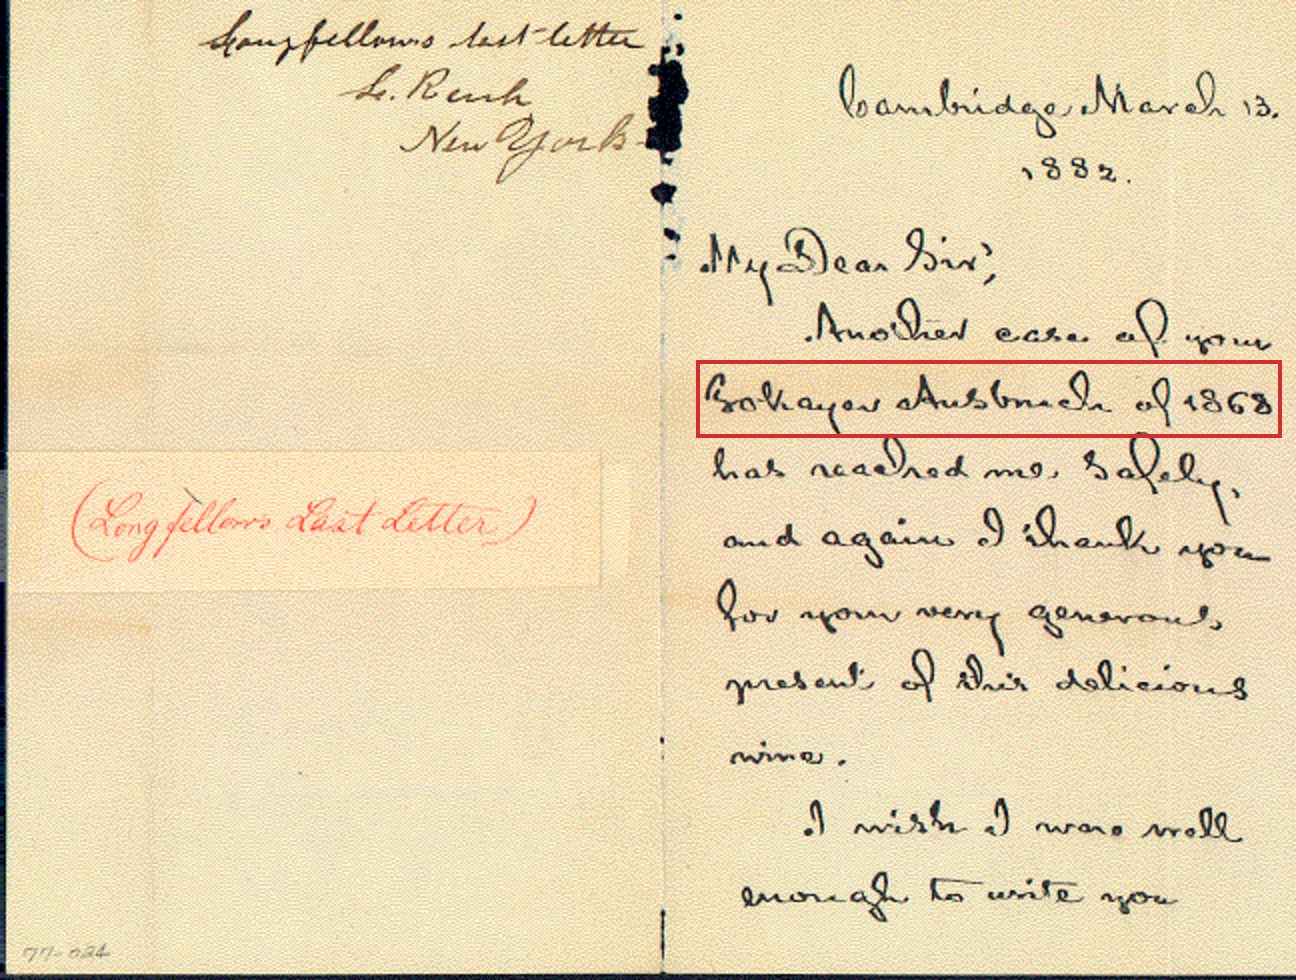 Longfellows last letter
L. Reich
New York
(Longfellows Last Letter)
77-024
Cambridge March 13.
1882.
My Dear Sir,
Another case of your
Tokayer Ausbruch of 1868
has reached me safely,
and again I thank you
for your very generous
present of this delicious
wine.
I wish I were well
enough to write you